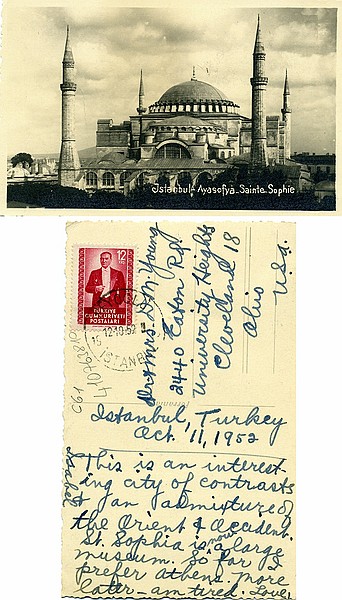 Istanbul - Ayasofya - Sainte Sophie
12
TÜRKİYE
CUMHURİYETİ
POSTALARI
12.10.52
İSTANBUL
Dr & Mrs D.M. Young
2440 Eaton Rd.
University Heights
Cleveland 18
Ohio
U.S.A.
Istanbul, Turkey
Oct. 11, 1952
This is an interest
ing city of contrasts
& an admixture of
the Orient & Occident.
St. Sophia is now a large
museum. So far I
prefer Athens. More
later - am tired. Love,
Rachel